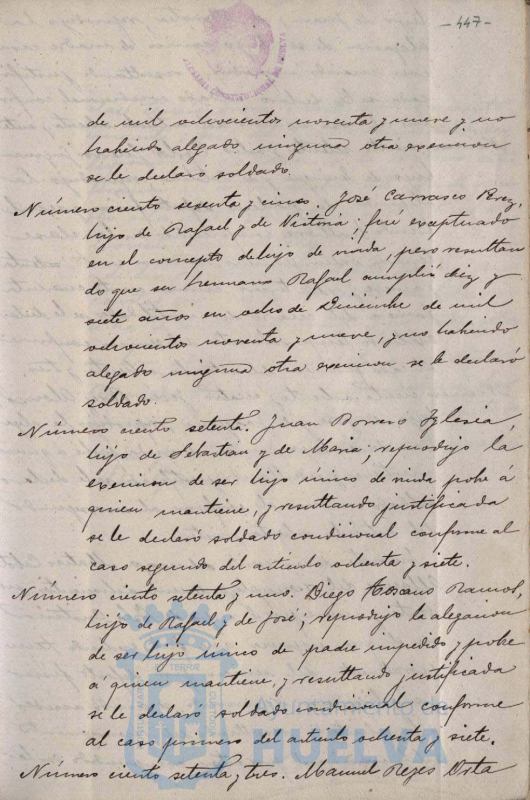 - 447 -
ALCALDIA CONSTITUCIONAL DE HUELVA
de mil ochocientos noventa y nueve y no
habiendo alegado ninguna otra exencion
se le declaró soldado.
Número ciento sesenta y cinco. José Carrasco Perez,
hijo de Rafael y de Victoria; fué exceptuado
en el concepto de hijo de viuda, pero resultan
do que su hermano Rafael cumplió diez y
siete años en ocho de Diciembre de mil
ochocientos noventa y nueve, y no habiendo
alegado ninguna otra exencion se le declaró
soldado.
Número ciento setenta. Juan Borrero Iglesia,
hijo de Sebastian y de Maria; reprodujo la
exencion de ser hijo único de viuda pobre á
quien mantiene, y resultando justificada
se le declaró soldado condicional conforme al
caso segundo del articulo ochenta y siete.
Número ciento setenta y uno. Diego Toscano Ramos,
hijo de Rafael y de José; reprodujo la alegacion
de ser hijo único de padre impedido y pobre
á quien mantiene, y resultando justificada
se le declaró soldado condicional conforme
al caso primero del articulo ochenta y siete.
Número ciento setenta y tres. Manuel Reyes Orta
HUELVA